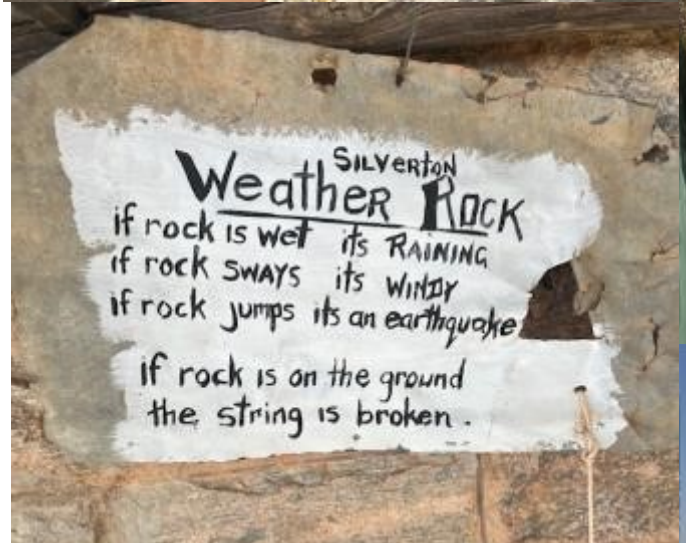 SILVERTON
WeatheR ROCK
if rock is wet its RAINING
if rock SWAYS its WINDY
if rock jumps its an earthquake
if rock is on the ground
the string is broken.